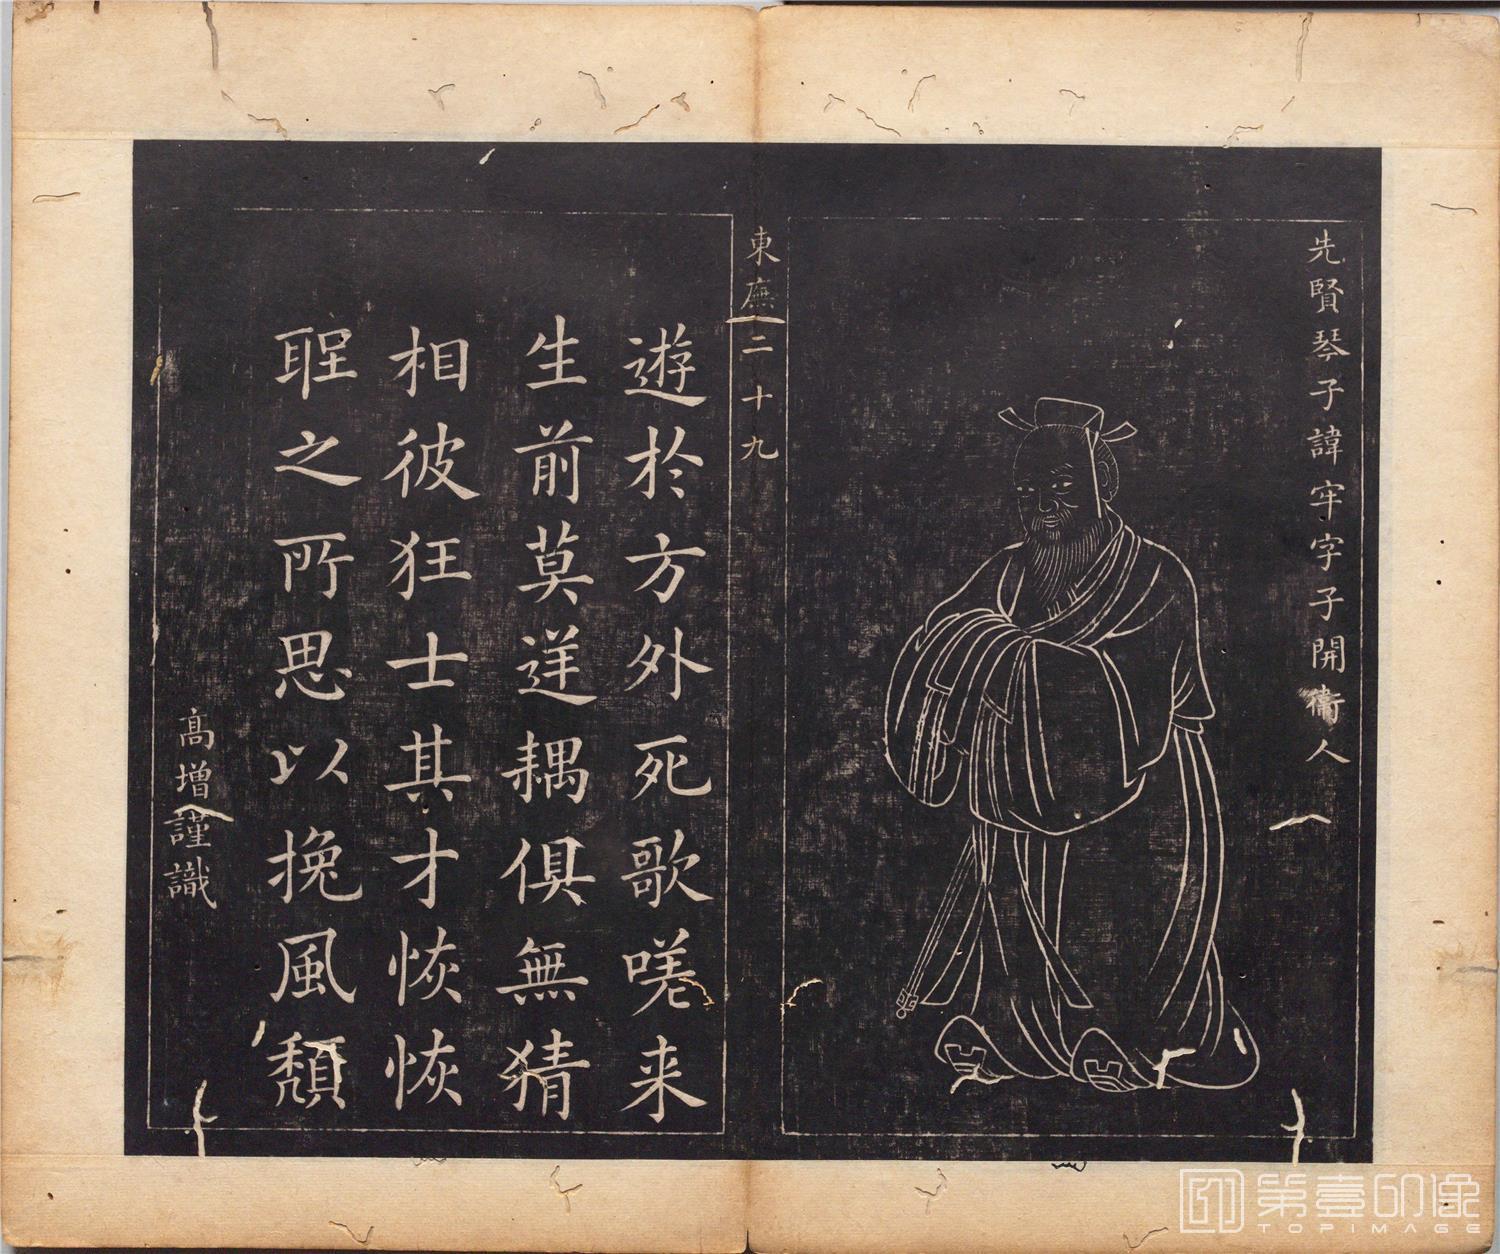 先賢琴子諱牢字子開衞人
東廡二十九
遊於方外死歌嗟来
生前莫逆耦俱無猜
相彼狂士其才恢恢
聖之所思以挽風頹
高增謹識
第壹印像
TOPIMAGE